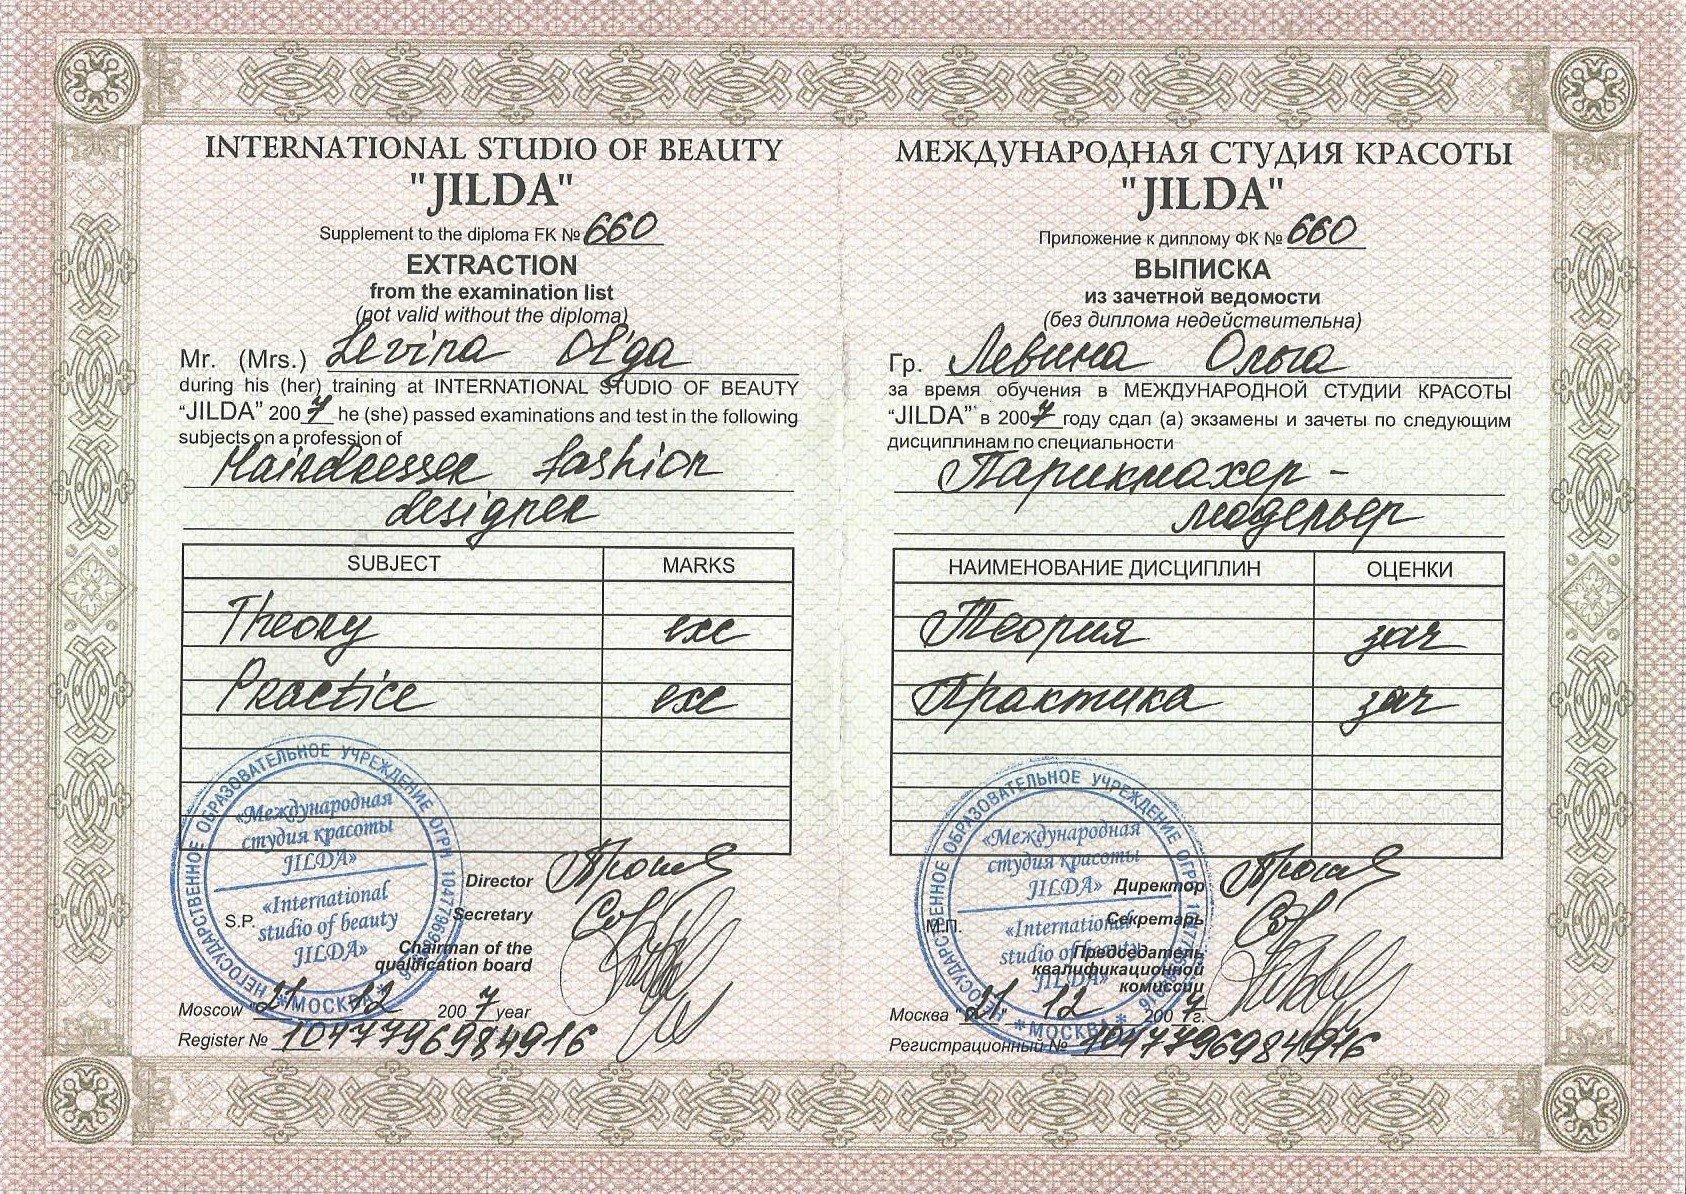 INTERNATIONAL STUDIO OF BEAUTY
"JILDA"
Supplement to the diploma FK № 660
EXTRACTION
from the examination list
(not valid without the diploma)
Mr. (Mrs.) Levina Ol'ga
during his (her) training at INTERNATIONAL STUDIO OF BEAUTY
"JILDA" 2007 he (she) passed examinations and test in the following
subjects on a profession of
Hairdresser fashion
designer
SUBJECT MARKS
Theory exc
Practice exc
НЕГОСУДАРСТВЕННОЕ ОБРАЗОВАТЕЛЬНОЕ УЧРЕЖДЕНИЕ ОГРН
* МОСКВА *
«Международная
студия красоты
JILDA»
«International
studio of beauty
JILDA»
S.P.
Director
Secretary
Chairman of the
qualification board
Moscow "21" 12 2007 year
Register № 1047796984916
МЕЖДУНАРОДНАЯ СТУДИЯ КРАСОТЫ
"JILDA"
Приложение к диплому ФК № 660
ВЫПИСКА
из зачетной ведомости
(без диплома недействительна)
Гр. Левина Ольга
за время обучения в МЕЖДУНАРОДНОЙ СТУДИИ КРАСОТЫ
"JILDA" в 2007 году сдал (а) экзамены и зачеты по следующим
дисциплинам по специальности
Парикмахер -
модельер
НАИМЕНОВАНИЕ ДИСЦИПЛИН ОЦЕНКИ
Теория зач
Практика зач
НЕГОСУДАРСТВЕННОЕ ОБРАЗОВАТЕЛЬНОЕ УЧРЕЖДЕНИЕ ОГРН
* МОСКВА *
«Международная
студия красоты
JILDA»
«International
studio of beauty
JILDA»
М.П.
Директор
Секретарь
Председатель
квалификационной
комиссии
Москва "21" 12 2007 г.
Регистрационный № 1047796984916